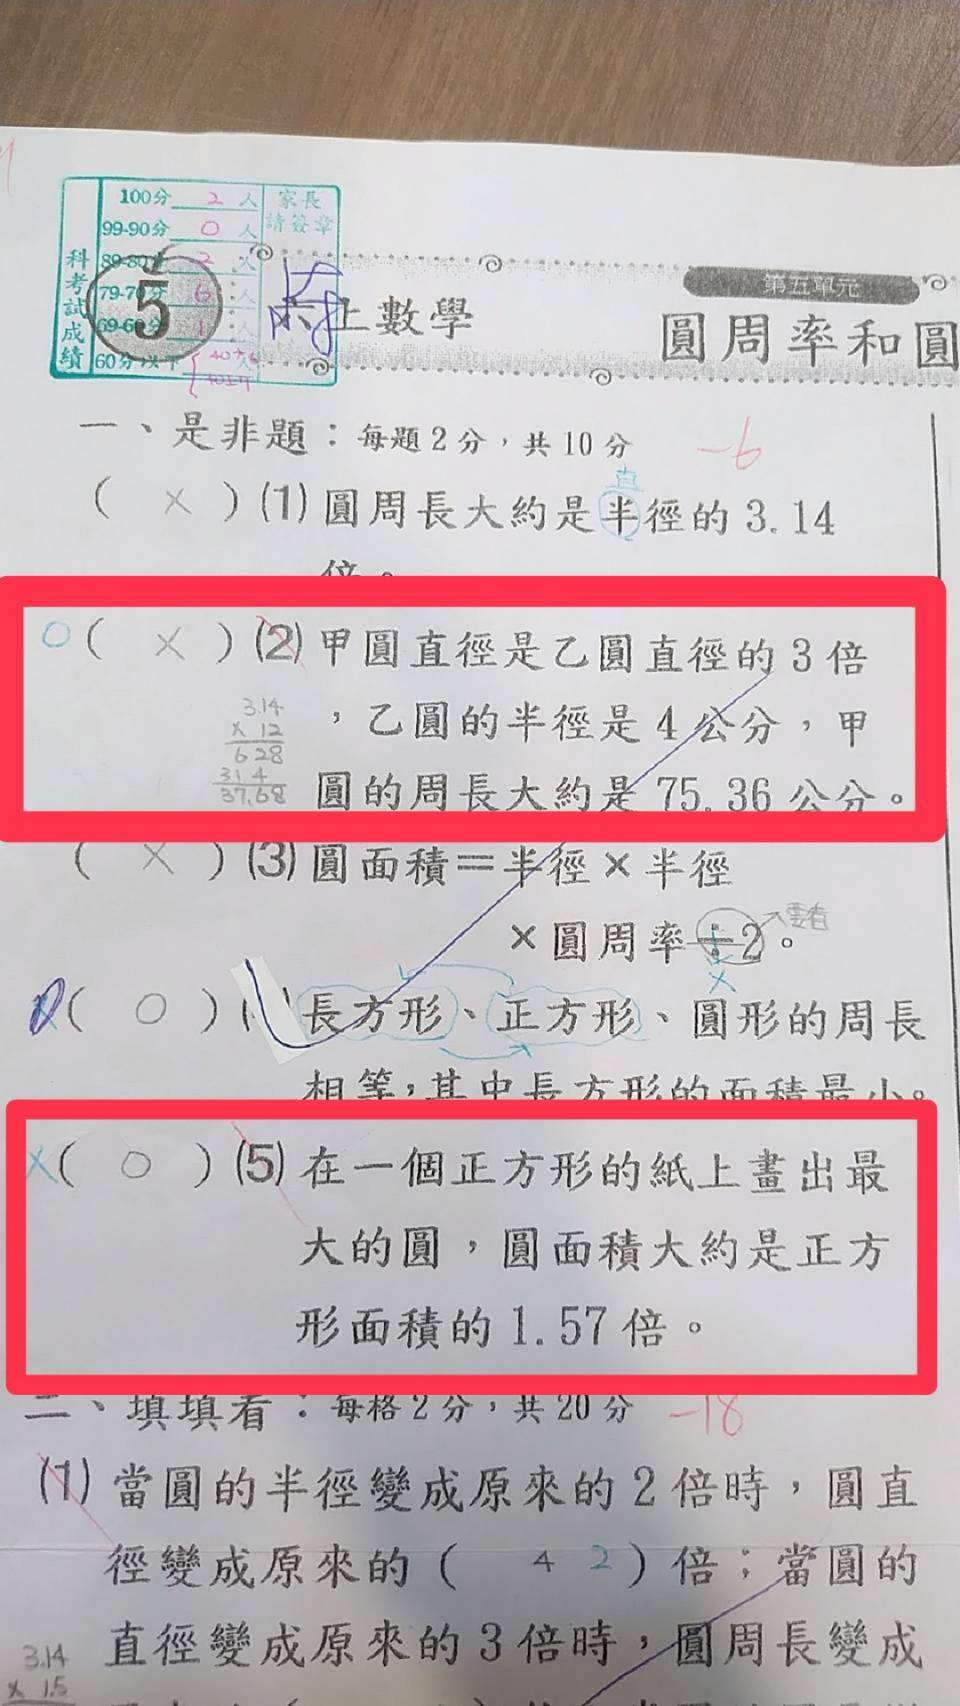 100分 2 人
家長
請簽章
99-90分 0 人
89-80分 2 人
79-70分 6 人
69-60分 1 人
60分以下
科考試成績
5
六上數學
第五單元
圓周率和圓
一、是非題：每題2分，共10分 -6
直
( × ) (1) 圓周長大約是半徑的 3.14
倍。
○ ( × ) (2) 甲圓直徑是乙圓直徑的 3 倍
，乙圓的半徑是 4 公分，甲
圓的周長大約是 75.36 公分。
3.14
× 12
628
31 4
37.68
( × ) (3) 圓面積＝半徑×半徑
×圓周率÷2。
×
( ○ ) 長方形、正方形、圓形的周長
相等，其中長方形的面積最小。
× ( ○ ) (5) 在一個正方形的紙上畫出最
大的圓，圓面積大約是正方
形面積的 1.57 倍。
二、填填看：每格2分，共20分 -18
(1) 當圓的半徑變成原來的 2 倍時，圓直
徑變成原來的 ( 4 2 ) 倍；當圓的
直徑變成原來的 3 倍時，圓周長變成
3.14
× 1.5